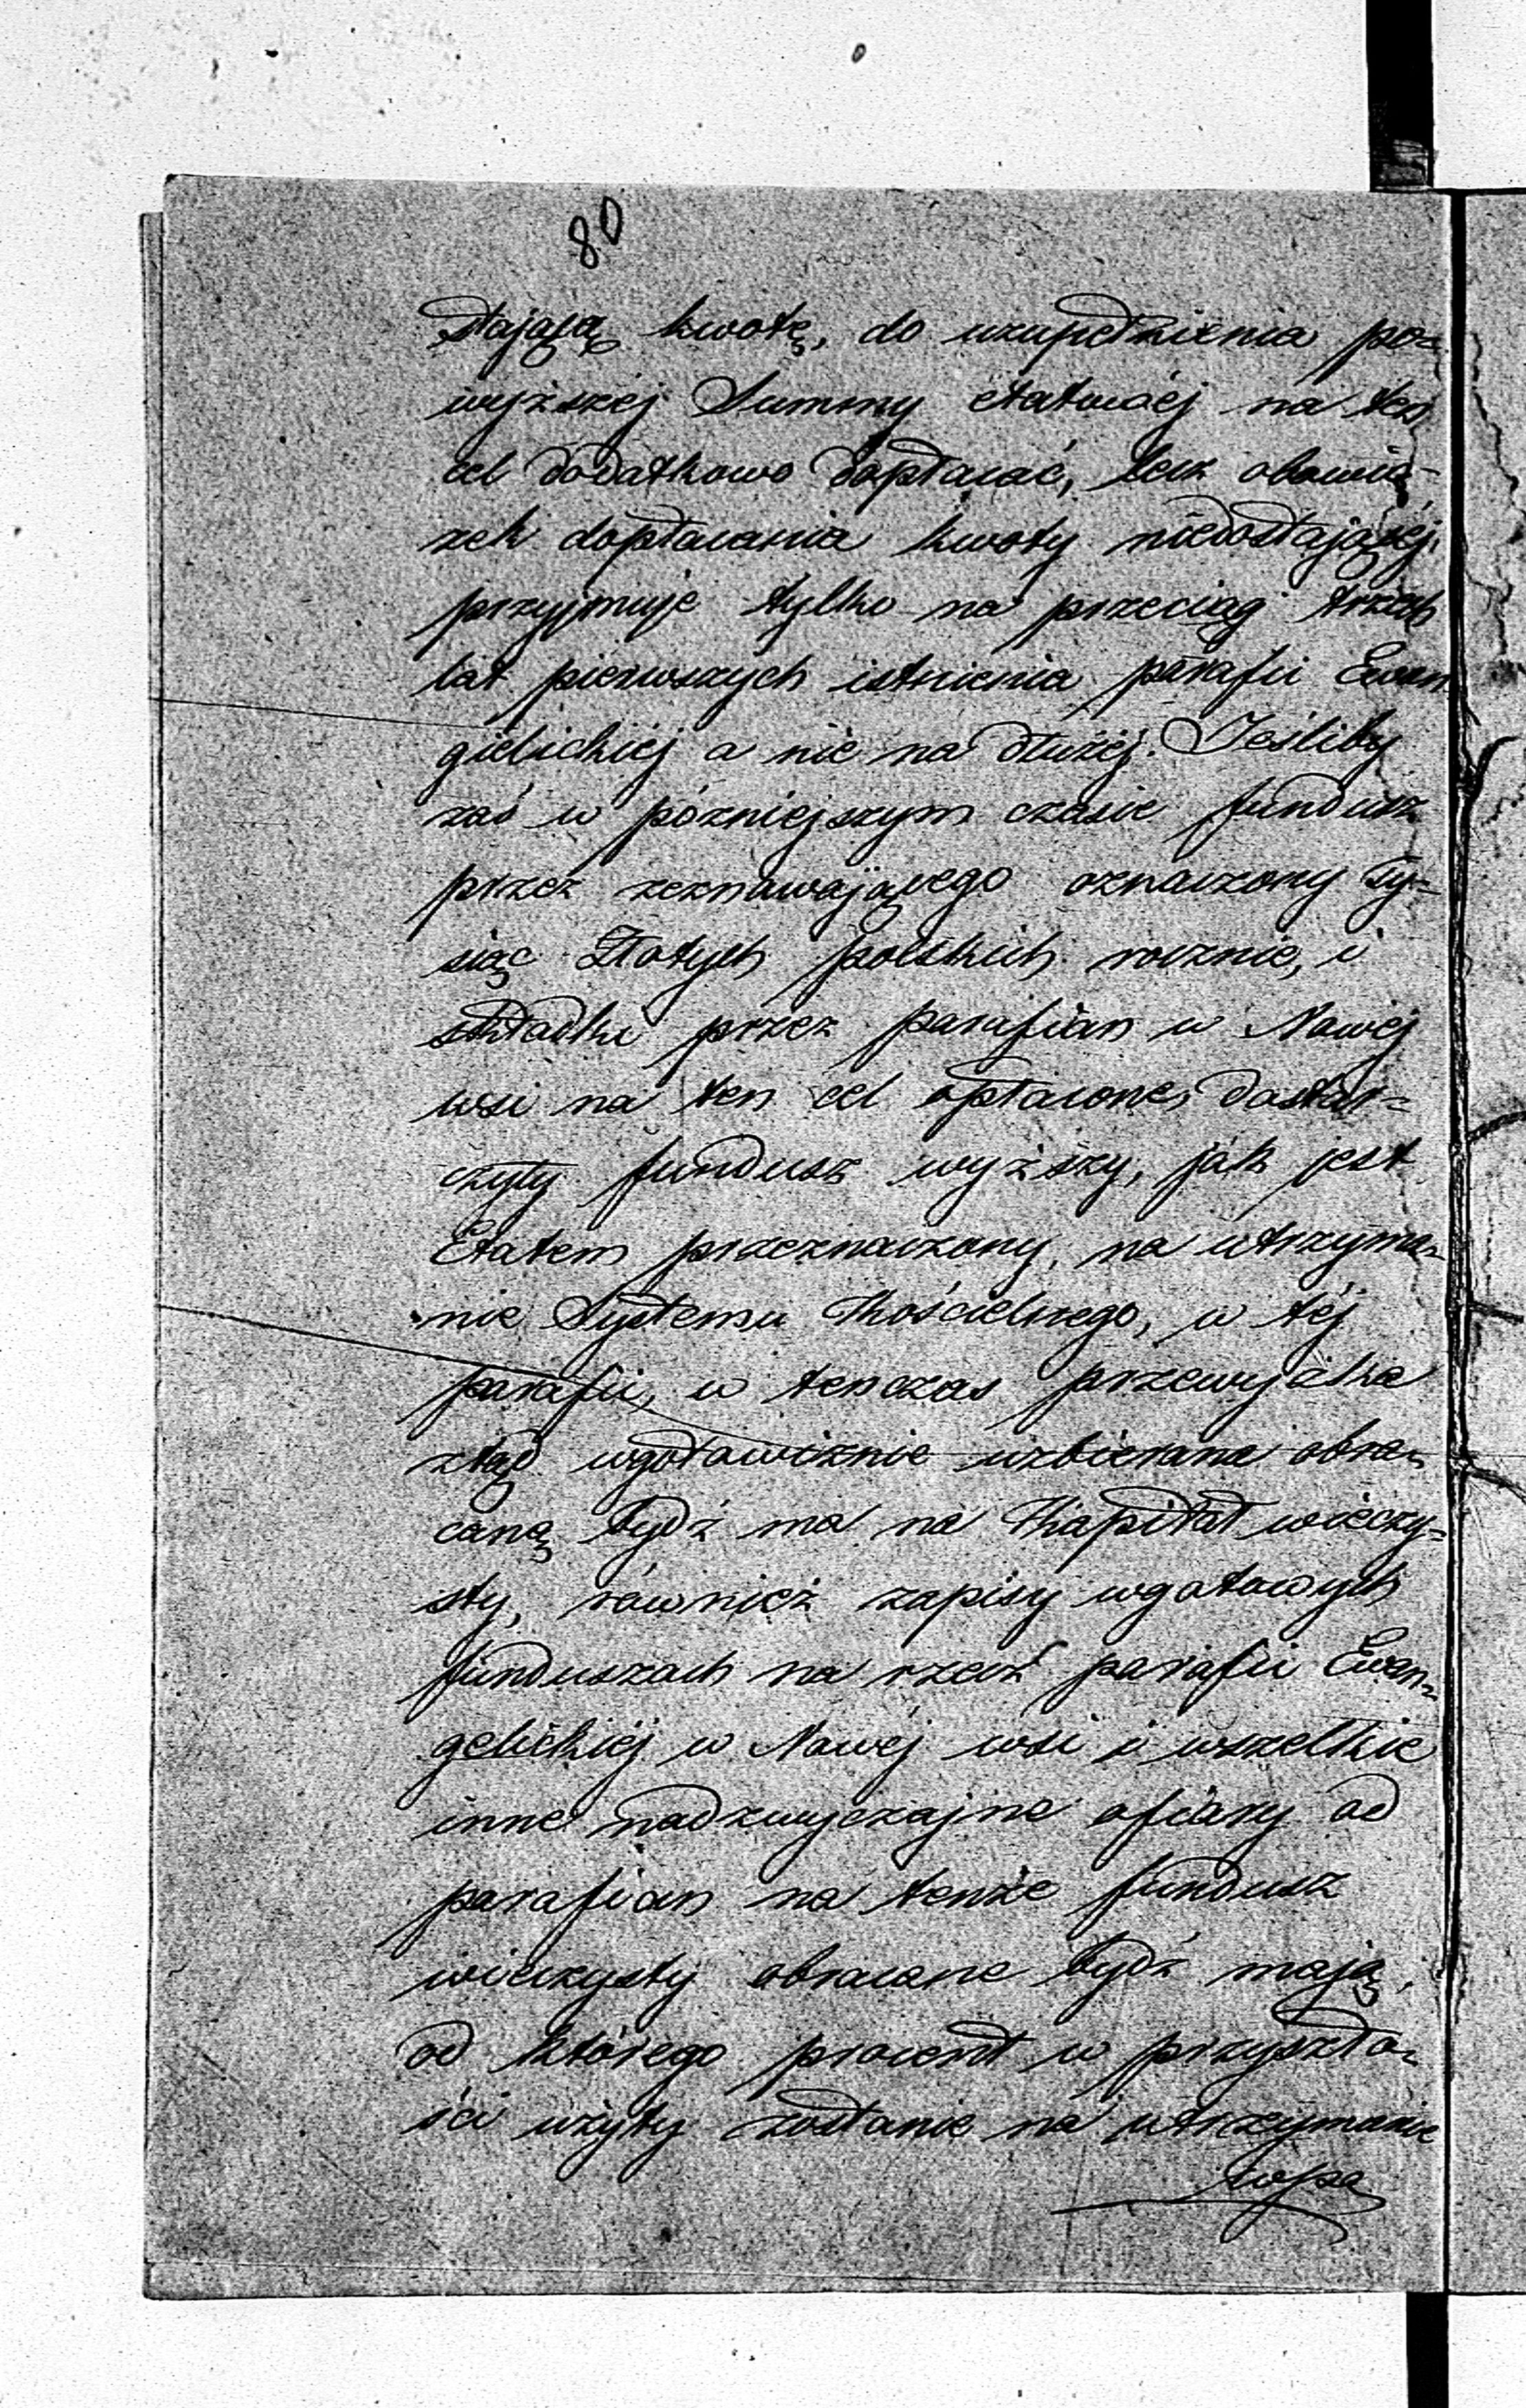 80
stającą kwotę, do uzupełnienia po=
wyższej Summy etatowéj na ten
cel dodatkowo dopłacać, lecz obowią-
zek dopłacania kwoty niedostającéj
przyjmuje tylko na przeciąg trzech
lat pierwszych istnienia parafii Ewan
gielickiéj a nie na dłużéj. Jeśliby
zaś w pózniejszym czasie fundusz
przez zeznawającego oznaczony Ty=
siąc Złotych polskich rocznie, i
składki przez parafian w Nowéj
wsi na ten cel opłacone, dostar=
czyły fundusz wyższy, jak jest
Etatem przeznaczony, na utrzyma=
nie Systemu Kościelnego, w téj
parafii, w tenczas przewyżka
ztąd wgotowiznie uzbierana obra=
caną bydź ma na Kapitał wieczy=
sty, również zapisy wgotowych
funduszach na rzecz parafii Ewan=
gelickiéj w Nowéj wsi i wszelkie
inne nadzwyczajne ofiary od
parafian na tenże fundusz
wieczysty obracane bydź mają,
od którego procent w przyszło=
ści użyty zostanie na utrzymanie